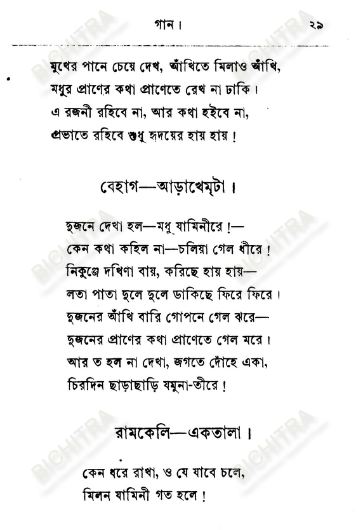 গান।
২৯
মুখের পানে চেয়ে দেখ, আঁখিতে মিলাও আঁখি,
মধুর প্রাণের কথা প্রাণেতে রেখ না ঢাকি।
এ রজনী রহিবে না, আর কথা হইবে না,
প্রভাতে রহিবে শুধু হৃদয়ের হায় হায়!
বেহাগ—আড়াখেম্‌টা।
দুজনে দেখা হল—মধু যামিনীরে!—
কেন কথা কহিল না—চলিয়া গেল ধীরে!
নিকুঞ্জে দখিণা বায়, করিছে হায় হায়—
লতা পাতা দুলে দুলে ডাকিছে ফিরে ফিরে।
দুজনের আঁখি বারি গোপনে গেল ঝরে—
দুজনের প্রাণের কথা প্রাণেতে গেল মরে।
আর ত হল না দেখা, জগতে দোঁহে একা,
চিরদিন ছাড়াছাড়ি যমুনা-তীরে!
রামকেলি—একতালা।
কেন ধরে রাখা, ও যে যাবে চলে,
মিলন যামিনী গত হলে!
BICHITRA
BICHITRA
BICHITRA
BICHITRA
BICHITRA